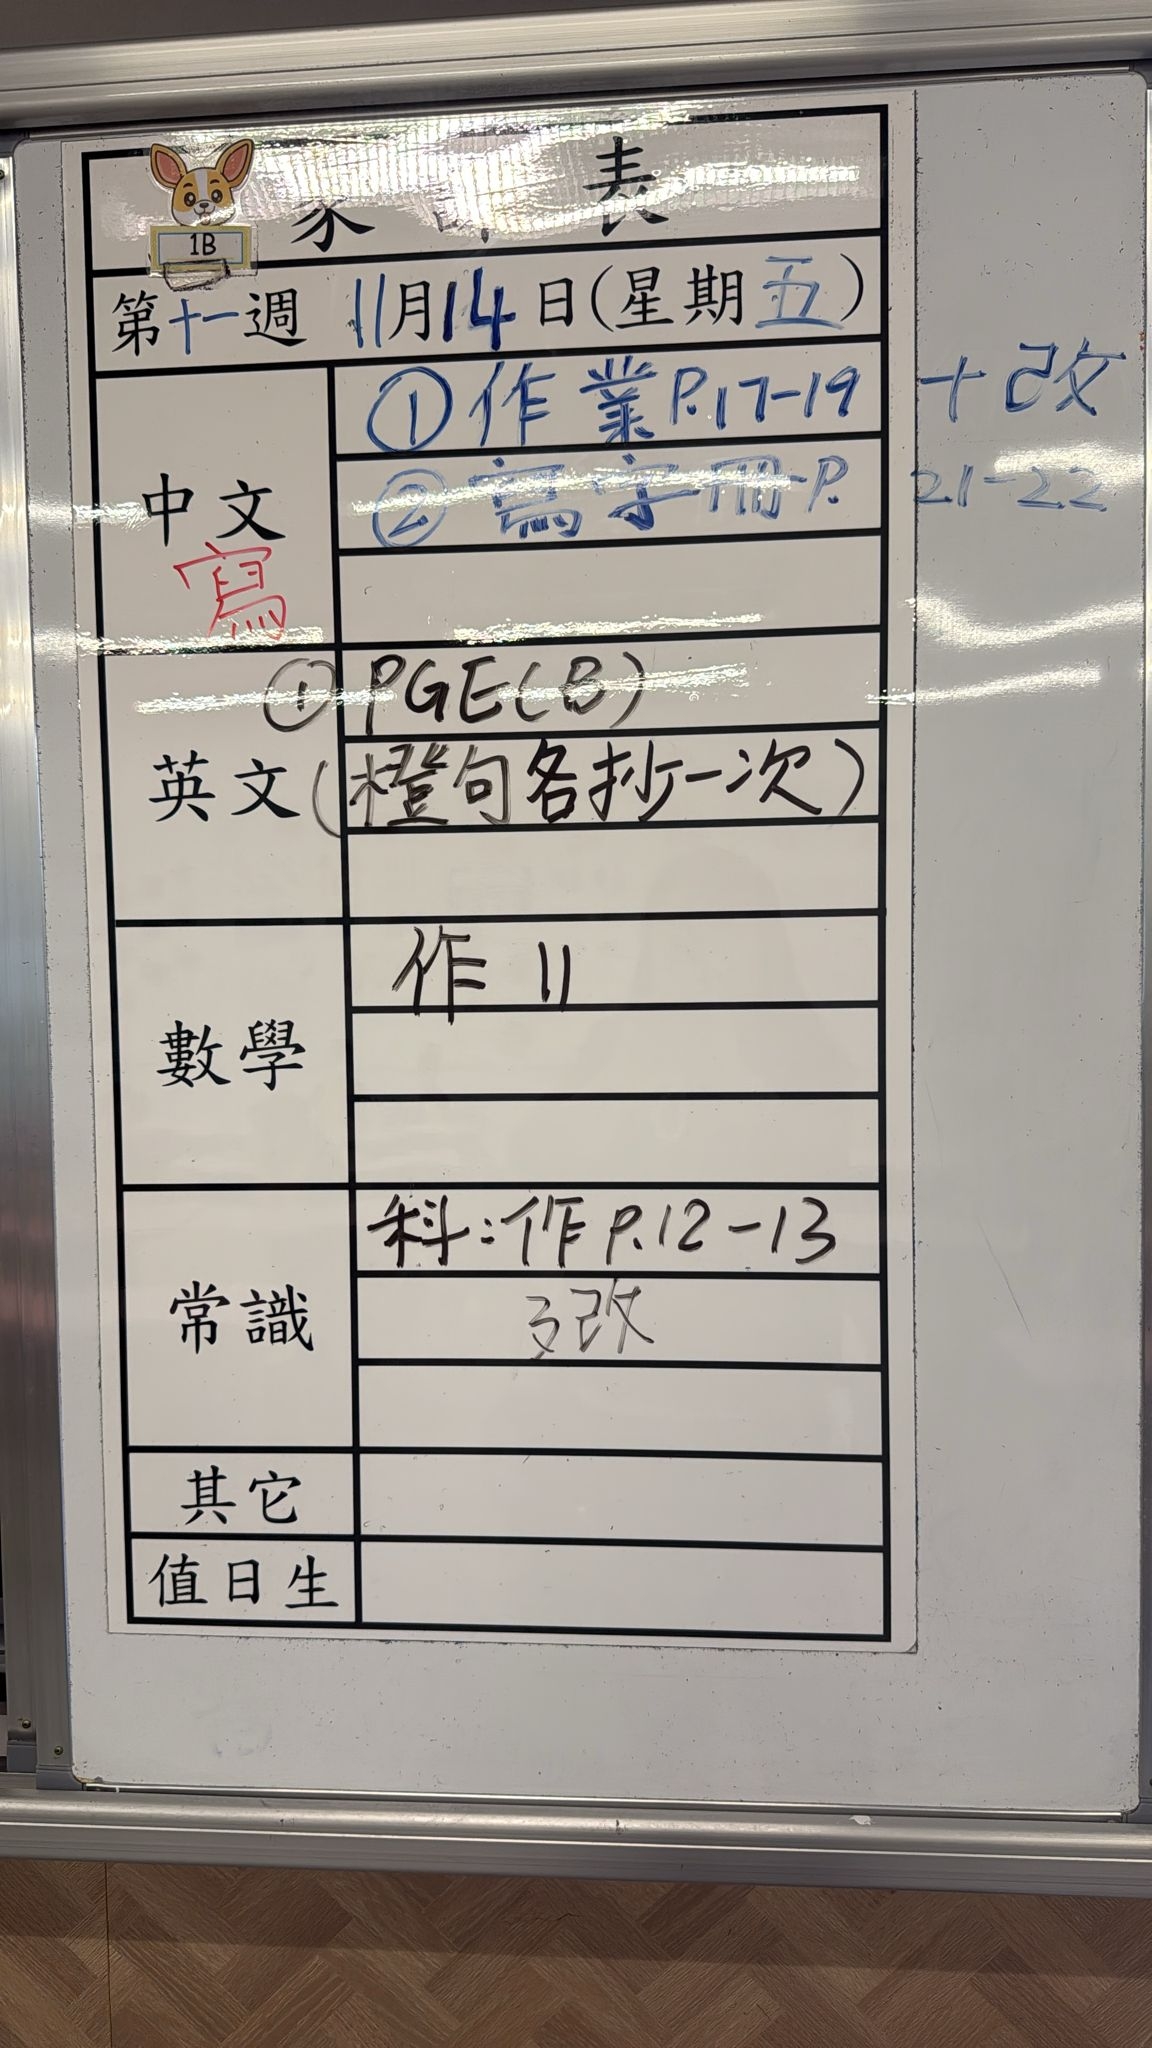 家 表
1B
第十一週 11月14日(星期五)
中文
① 作業P.17-19 +改
② 寫字冊P. 21-22
寫
英文
① PGE(B)
(橙句各抄一次)
數學
作 11
常識
科:作P.12-13
改
其它
值日生